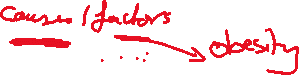 causes / factors
obesity